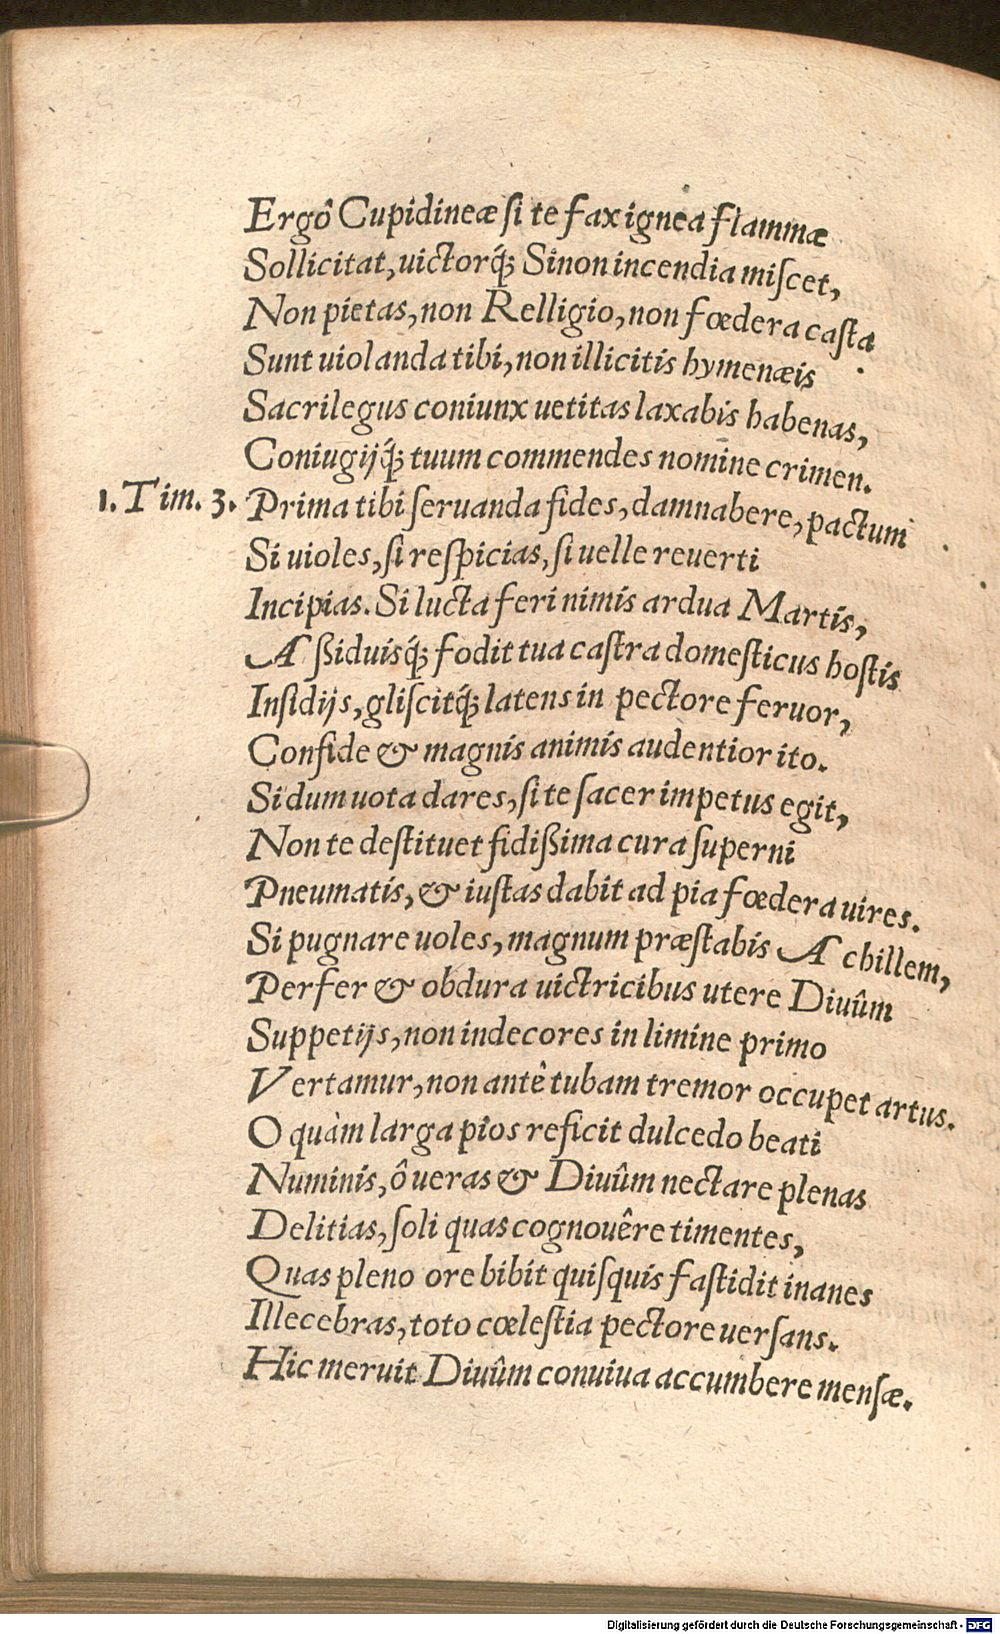 Ergô Cupidineæ ſi te fax ignea flammæ
Sollicitat, uictorq́; Sinon incendia miſcet,
Non pietas, non Relligio, non fœdera caſta
Sunt uiolanda tibi, non illicitis hymenæis.
Sacrilegus coniunx uetitas laxabis habenas,
Coniugijq́; tuum commendes nomine crimen.
1. Tim. 3. Prima tibi ſeruanda fides, damnabere, pactum
Si uioles, ſi reſpicias, ſi uelle reuerti
Incipias. Si lucta feri nimis ardua Martis,
Aßiduisq́; fodit tua caſtra domeſticus hoſtis
Inſidijs, gliſcitq́; latens in pectore feruor,
Confide & magnis animis audentior ito.
Si dum uota dares, ſi te ſacer impetus egit,
Non te deſtituet fidißima cura ſuperni
Pneumatis, & iuſtas dabit ad pia fœdera uires.
Si pugnare uoles, magnum præſtabis Achillem,
Perfer & obdura uictricibus utere Diuûm
Suppetijs, non indecores in limine primo
Vertamur, non antê tubam tremor occupet artus.
O quàm larga pios reficit dulcedo beati
Numinis, ô ueras & Diuûm nectare plenas
Delitias, ſoli quas cognouêre timentes,
Quas pleno ore bibit quiſquis faſtidit inanes
Illecebras, toto cœleſtia pectore uerſans.
Hic meruit Diuûm conuiua accumbere menſæ.
Digitalisierung gefördert durch die Deutsche Forschungsgemeinschaft - DFG